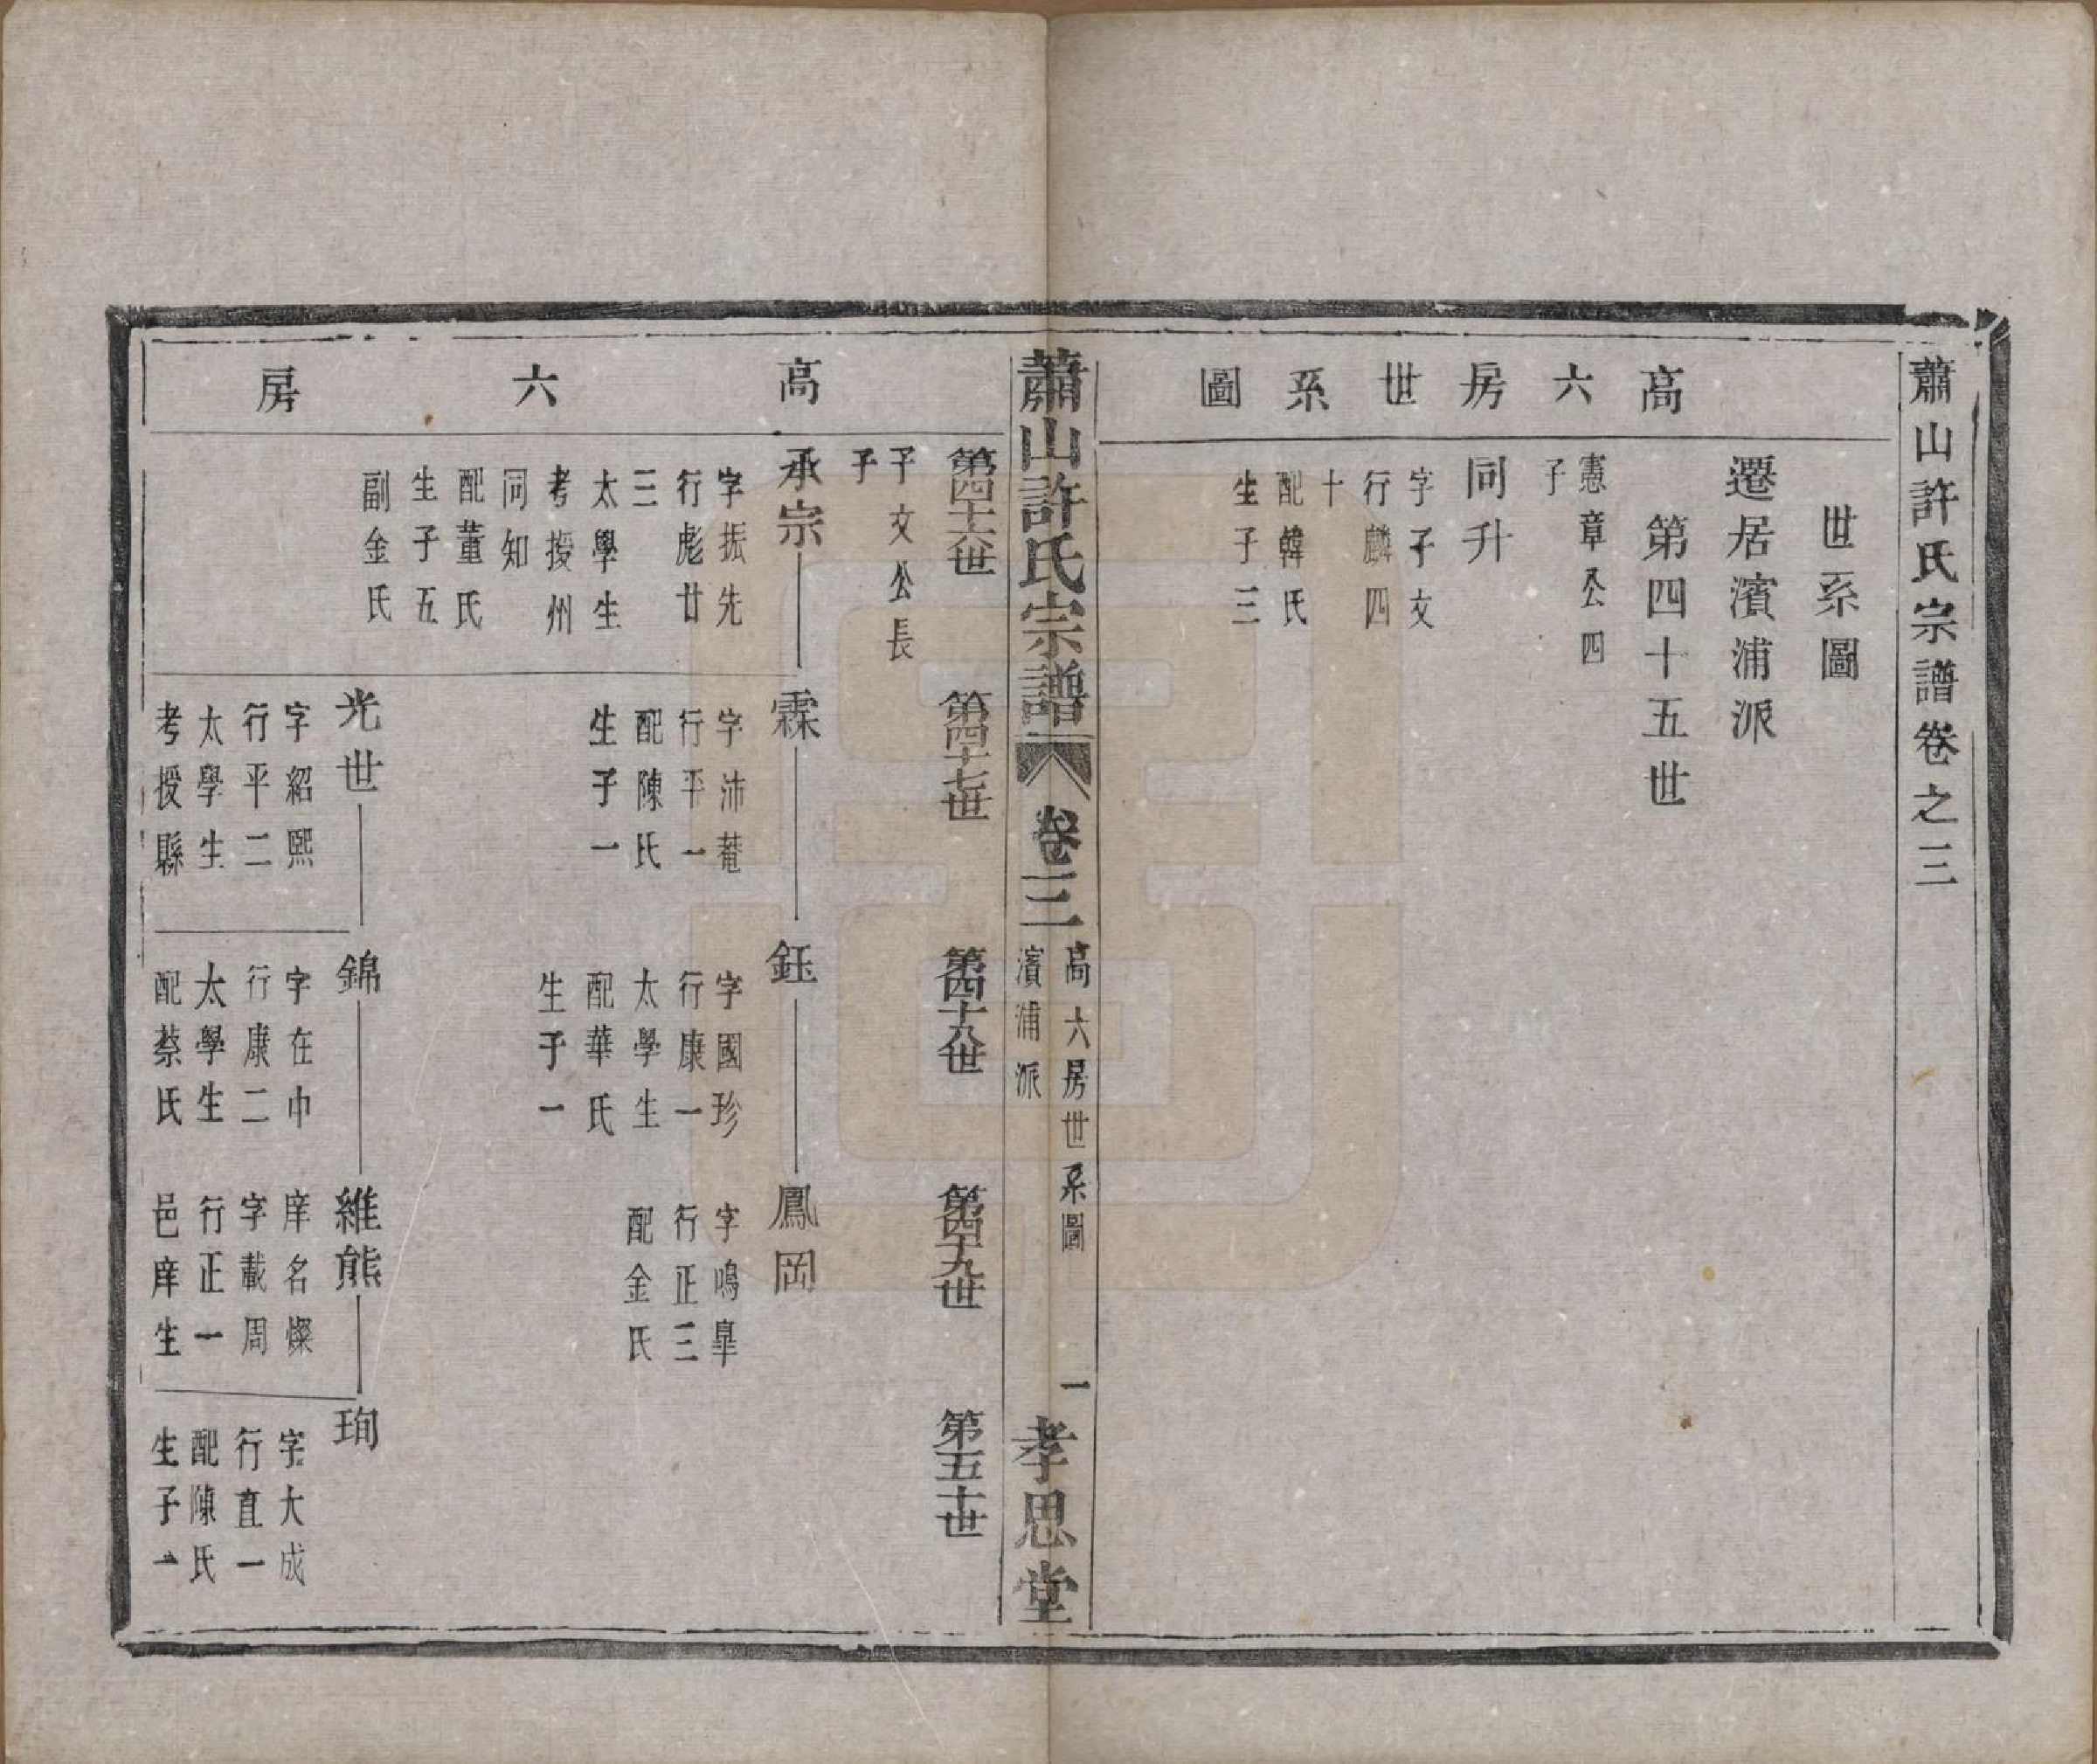 蕭山許氏宗譜卷之三
高六房世系圖
世系圖
遷居濱浦派
第四十五世
憲章公四
子
同升
字子文
行麟四
十
配韓氏
生子三
蕭山許氏宗譜 卷三
高六房世系圖 一
濱浦派
孝思堂
高六房
第四十六世
子文公長
子
承宗
字振先
行彪廿
三
太學生
考授州
同知
配董氏
生子五
副金氏
第四十七世
霖
字沛菴
行平一
配陳氏
生子一
光世
字紹熙
行平二
太學生
考授縣
第四十八世
鈺
字國珍
行康一
太學生
配華氏
生子一
錦
字在中
行康二
太學生
配蔡氏
第四十九世
鳳岡
字鳴皋
行正三
配金氏
維熊
庠名燦
字載周
行正一
邑庠生
第五十世
珣
字大成
行直一
配陳氏
生子一